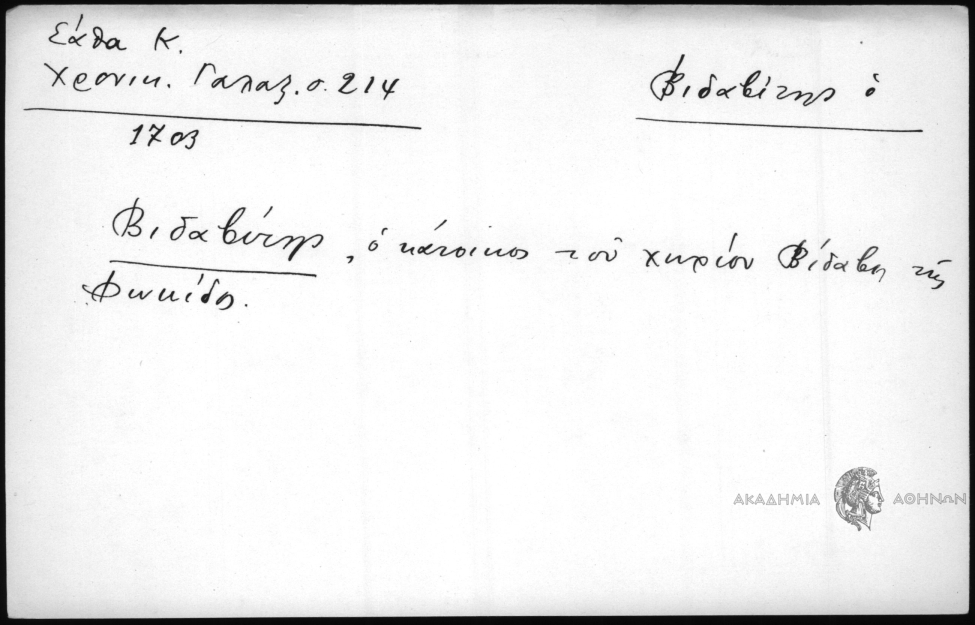 Σάθα Κ.
Χρονικ. Γαλαξ. σ. 214
Βιδαβίτης ὁ
1703
Βιδαβίτης, ὁ κάτοικος τοῦ χωρίου Βίδαβη τῆς
Φωκίδος.
ΑΚΑΔΗΜΙΑ ΑΘΗΝΩΝ